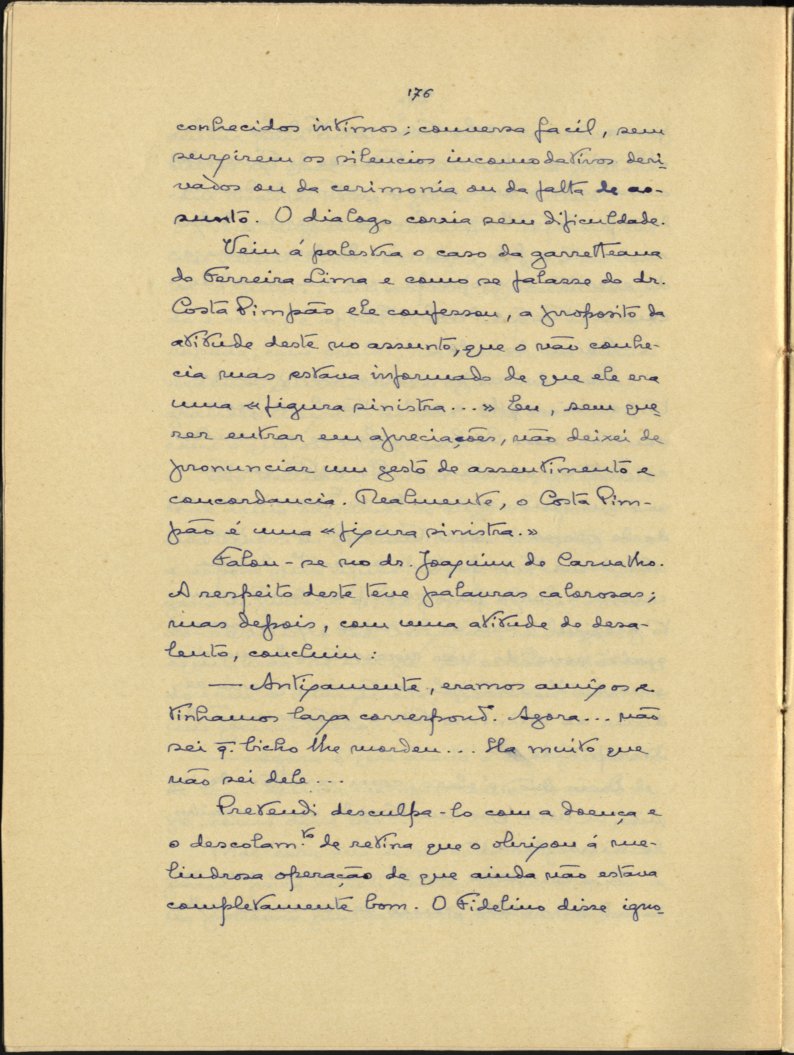 176
conhecidos intimos; conversa facil, sem
surgirem os silencios incomodativos deri-
vados ou da cerimonia ou da falta de as-
sunto. O dialogo corria sem dificuldade.
Veiu á palestra o caso da garretteana
do Ferreira Lima e como se falasse do dr.
Costa Pimpão ele confessou, a proposito da
atitude deste no assunto, que o não conhe-
cia mas estava informado de que ele era
uma «figura sinistra...» Eu, sem que-
rer entrar em apreciações, não deixei de
pronunciar um gesto de assentimento e
concordancia. Realmente, o Costa Pim-
pão é uma «figura sinistra.»
Falou-se no dr. Joaquim de Carvalho.
A respeito deste teve palavras calorosas;
mas depois, com uma atitude de desa-
lento, concluiu:
— Antigamente, eramos amigos e
tinhamos larga correspond.ª Agora... não
sei q. bicho lhe mordeu... Ha muito que
não sei dele...
Pretendi desculpa-lo com a doença e
o descolam.to de retina que o obrigou á me-
lindrosa operação de que ainda não estava
completamente bom. O Fidelino disse igno-